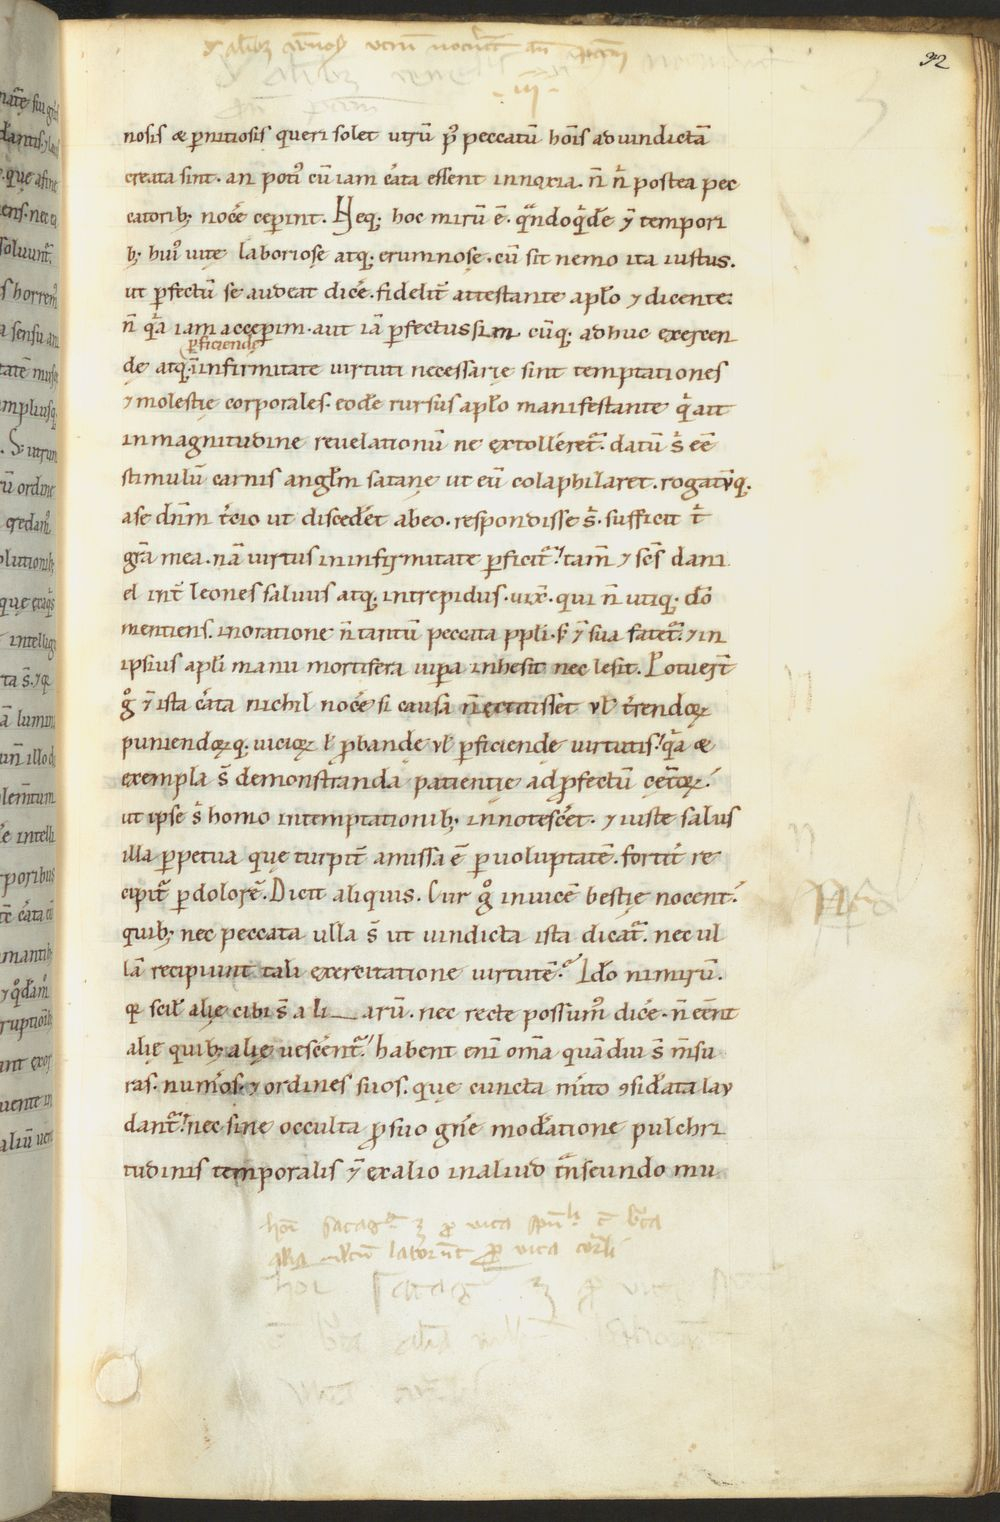 92
nosis & p̄nitiosis queri solet utrū p᷒ peccatū hōis ad uindictā
creata sint. an poti᷒ cū iam c̄ata essent innoxia. n̄ n̂ postea pec
catorib; noc̄e cep̄int. Neq; hoc mirū ē. qn̄doqͥdē ⁊̄ tempori
b; hui᷒ uitę laboriosę atq; erumnosę. cū sit nemo ita iustus.
ut p̄fectū se audeat dic̄e. fidelit̄ attestante apl̄o ⁊ dicente.
n̄ qͥa iam accep̄im. aut iā p̄fectus sim cūq; adhuc exercen
p̄ficiendę
dę atq; ī infirmitate uirtuti necessarię sint temptationes
⁊ molestię corporales. eodē rursus apl̄o manifestante qͥ ait
in magnitudine reuelationū ne extolleret᷑. datū s̄ eē
stimulū carnis angl̄m satanę ut eū colaphilaret. rogatūq;
a se dn̄m t̄cio ut disced̄et ab eo. respondisse s̄. sufficit t̄
gr̄a mea. nā uirtus in infirmitate p̄ficit᷑. tam̄ ⁊ sc̄s dani
el int̄ leones saluus atq; intrepidus uix̄. qui n̄ utiq; dō
mentiens. in oratione n̄ tantū peccata ppl̄i. s; ⁊̄ sua fatet᷑. ⁊ in
ipsius apl̄i manu mortifera uip̄a inhesit nec lesit. Potuer̄t
g̊ ⁊̄ ista c̄ata nichil noc̄e si causa n̄ extitisset ul̄ t̄rendoꝝ
puniendoꝝq; uicioꝝ ł p̄bandę ul̄ p̄ficiendę uirtutis. qͥa &
exempla s̄ demonstranda patientię ad p̄fectū cet̄oꝝ.
ut ipse s̄ homo in temptationib; innotesc̄et. ⁊ iuste salus
illa p̄petua quę turpit̄ amissa ē p̄ uoluptatē. fortit̄ re
cipit᷑ p̄ dolorē. Dicit aliquis. Cur g̊ inuicē bestię nocent.
quib; nec peccata ulla s̄ ut uindicta ista dicat᷑. nec ul
lā recipiunt tali exercitatione uirtutē. Idō nimirū.
q scil̄ alię cibi s̄ ali arū. nec recte possum᷒ dic̄e. n̄ eēnt
alię quib; alię uesc̄ent᷑. habent eni om̄a quādiu s̄ m̄su
ras. num̄os. ⁊ ordines suos. que cuncta m̄ito ꝯsid̄ata lau
dant᷑. nec sine occulta p̄ suo gn̄e mod̄atione pulchri
tudinis temporalis ⁊̄ ex alio in aliud tn̄seundo mu